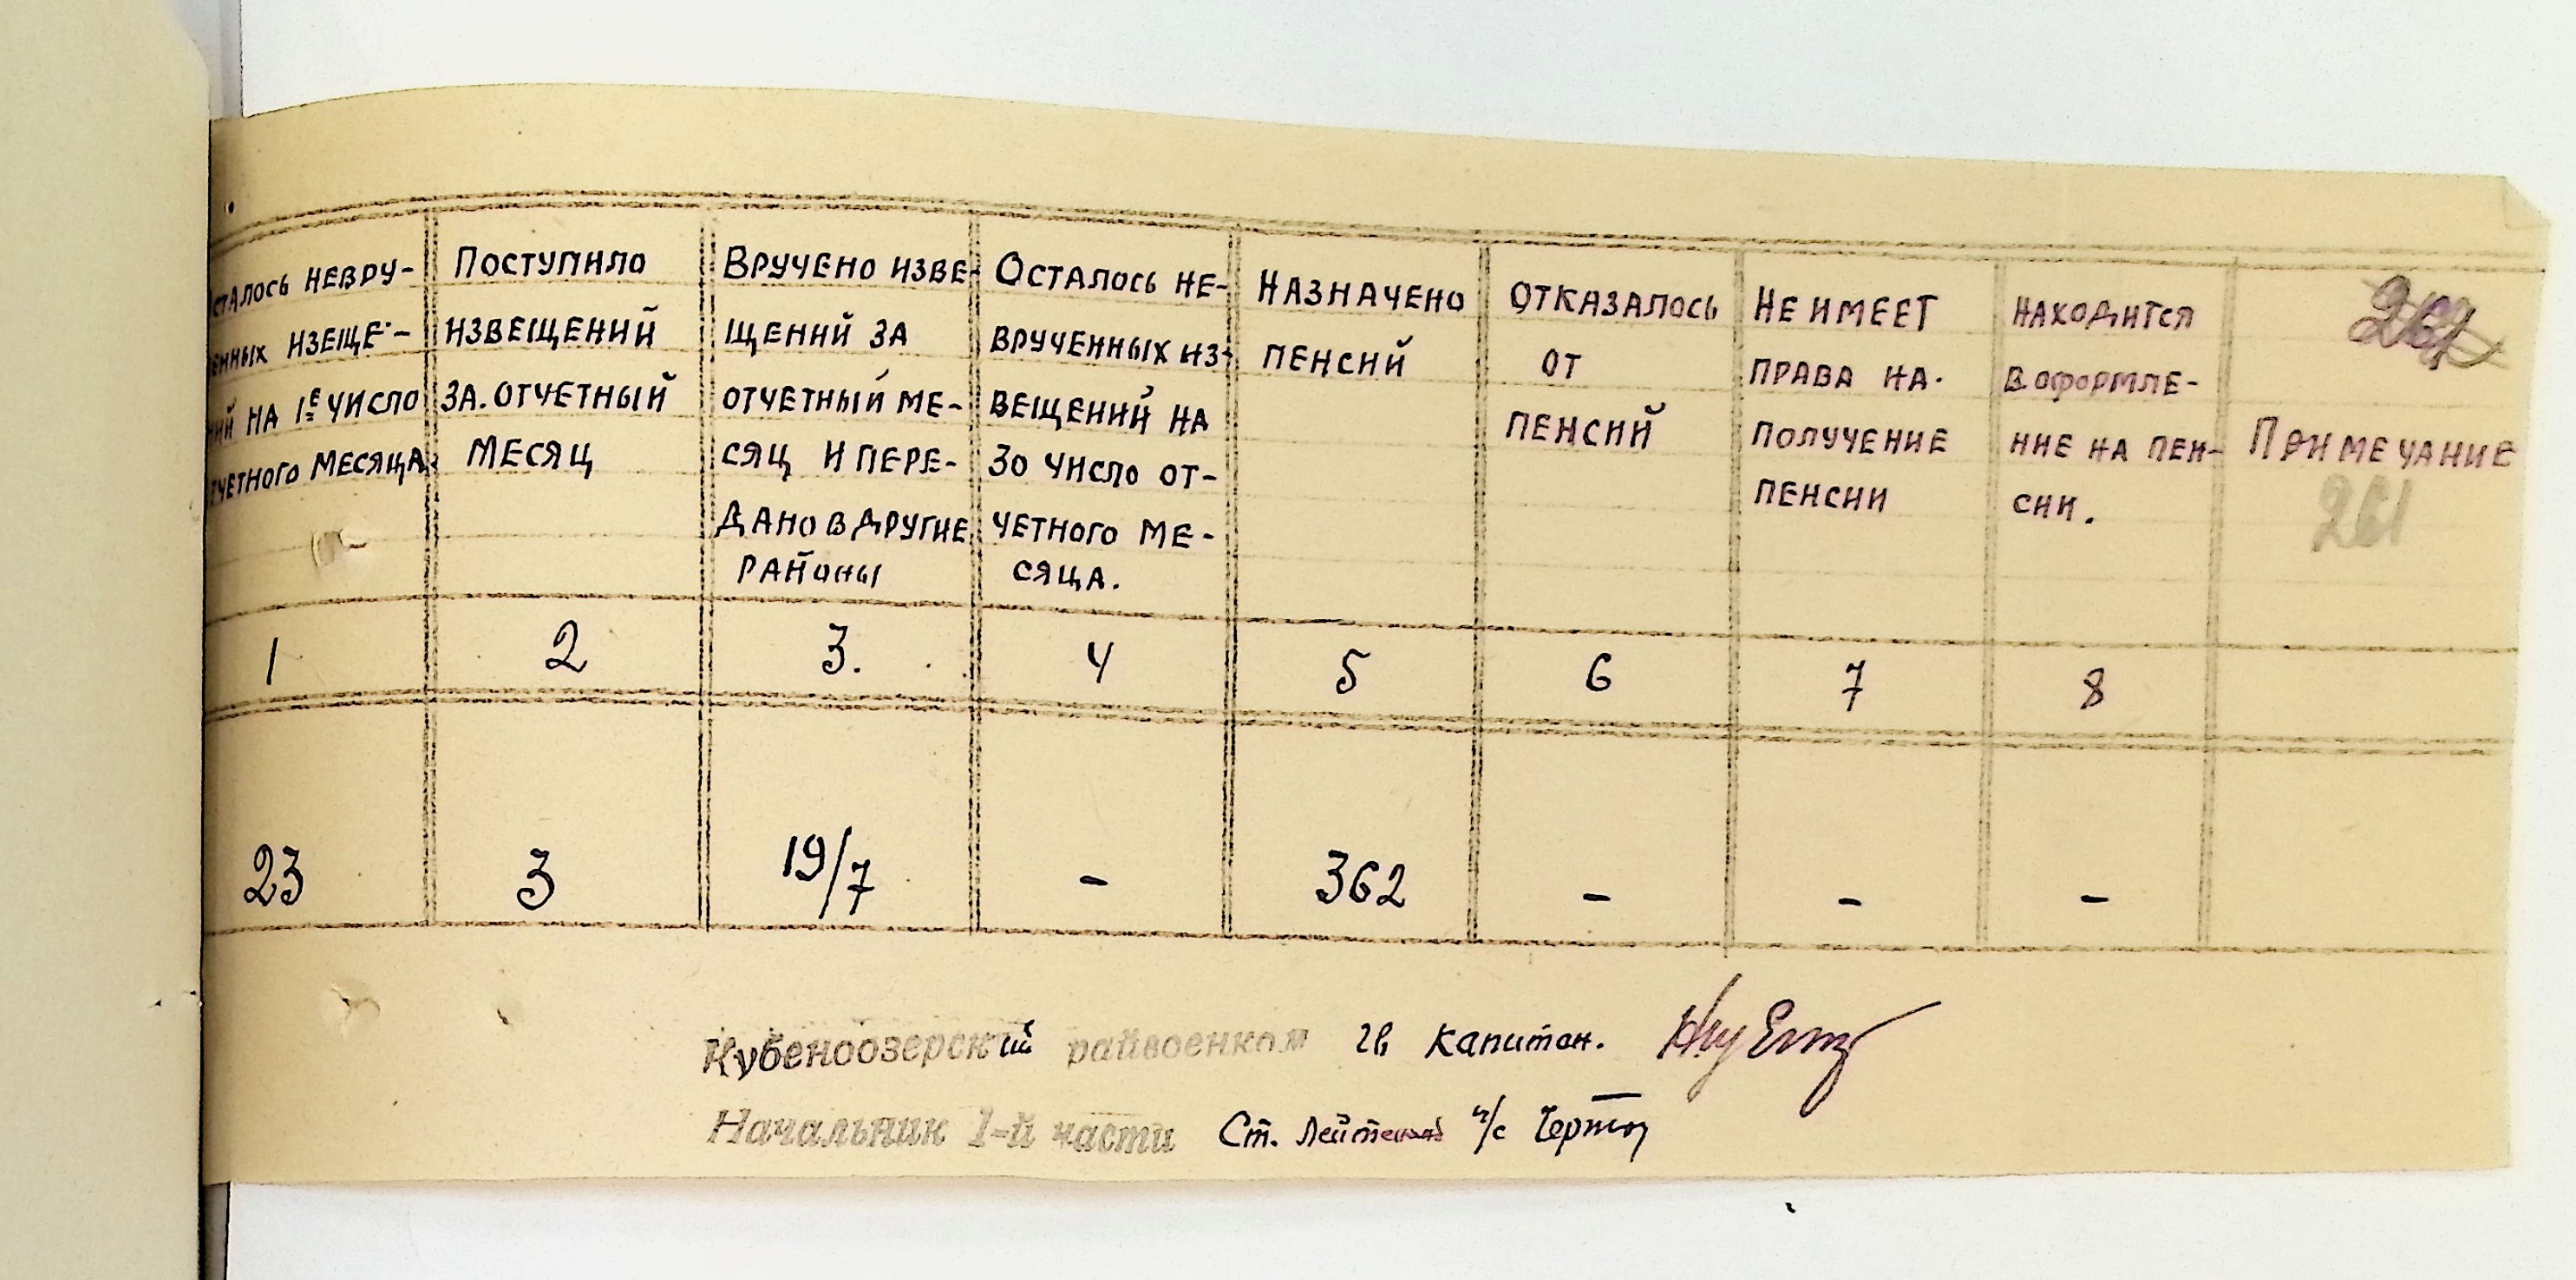 сталось невру-
енных изеще-
ний на 1е число
тчетного месяца
Поступило
извещений
за. отчетный
месяц
Вручено изве-
щений за
отчетный ме-
сяц и пере-
дано в другие
районы
Осталось не-
врученных из-
вещений на
30 число от-
четного ме-
сяца.
Назначено
пенсий
Отказалось
от
пенсий
Не имеет
права на.
получение
пенсии
Находится
в оформле-
ние на пен-
сии.
Примечание
261
1 2 3. 4 5 6 7 8
23 3 19/7 - 362 - - -
Кубеноозерский райвоенком гв капитан.
Начальник 1-й части Ст. лейтенант и/с